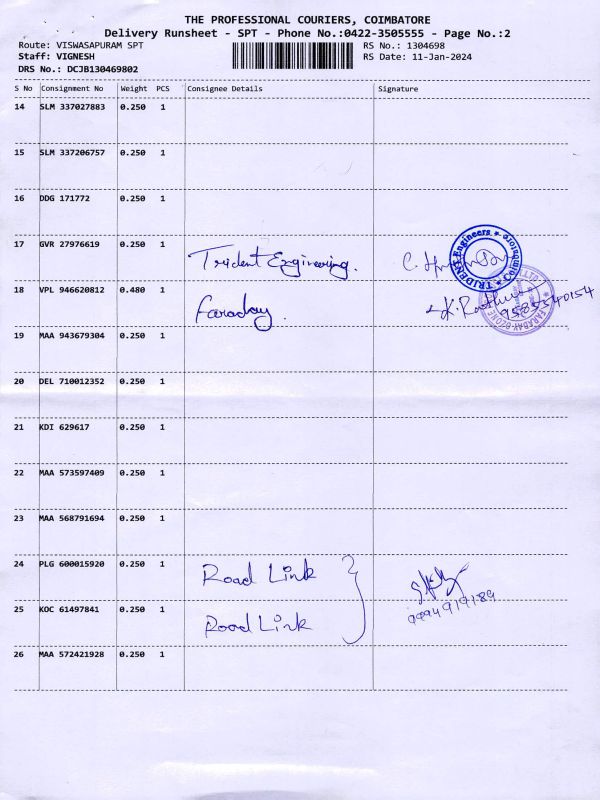 THE PROFESSIONAL COURIERS, COIMBATORE
Delivery Runsheet - SPT - Phone No.:0422-3505555 - Page No.:2
Route: VISWASAPURAM SPT
RS No.: 1304698
Staff: VIGNESH
RS Date: 11-Jan-2024
DRS No.: DCJB130469802
S No Consignment No Weight PCS Consignee Details Signature
14 SLM 337027883 0.250 1
15 SLM 337206757 0.250 1
16 DDG 171772 0.250 1
17 GVR 27976619 0.250 1
Trident Engineering.
TRIDENT Engineers * Coimbatore *
18 VPL 946620812 0.480 1
Faraday.
9585540154
FARADAY OZONE
19 MAA 943679304 1
20 DEL 710012352 0.250 1
21 KDI 629617 0.250 1
22 MAA 573597409 0.250 1
23 MAA 568791694 0.250 1
24 PLG 600015920 0.250 1
Road Link
9994919189
25 KOC 61497841 0.250 1
Road Link
26 MAA 572421928 0.250 1